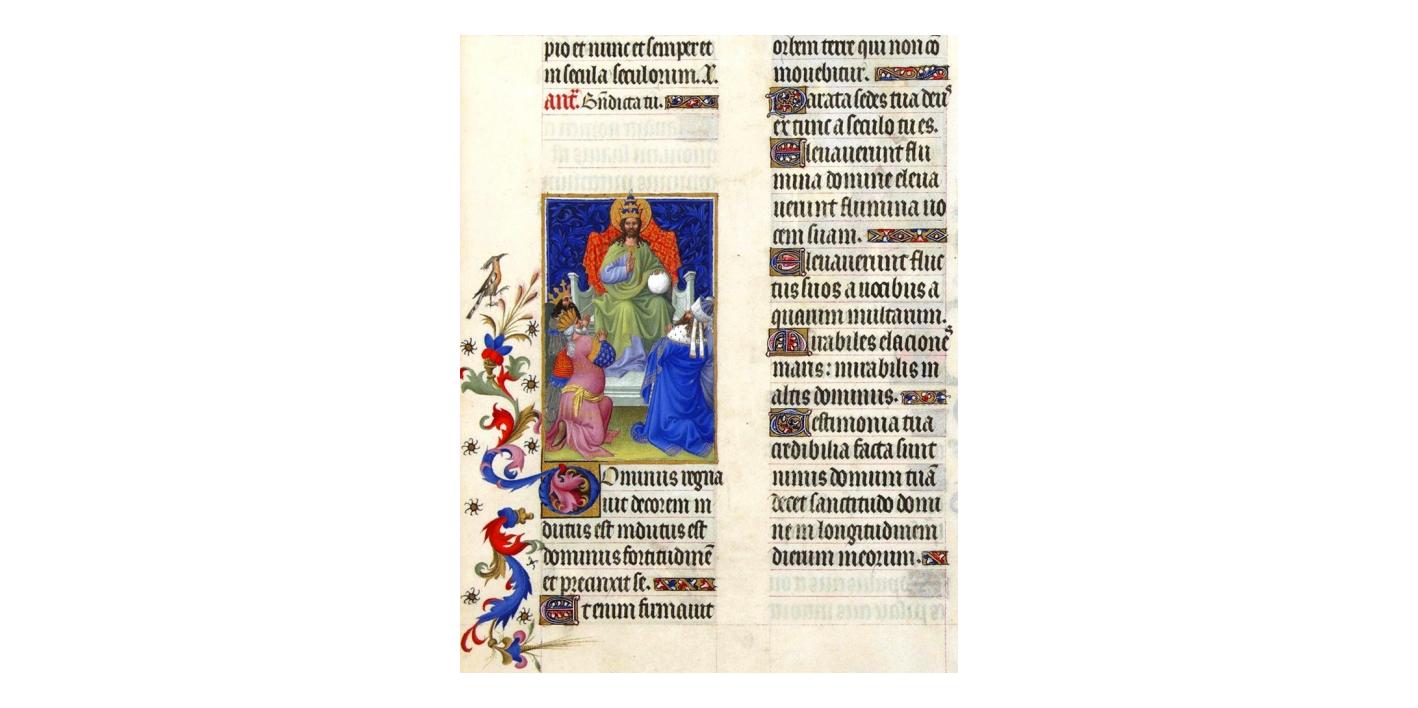 pio et nunc et semper et
in secula seculorum.
ant̃. Bñdicta tu.
Dominus regna
uit decorem in
dutus est indutus est
dominus fortitudinē
et precinxit se.
Etenim firmauit
orbem terre qui non cō
mouebitur.
Parata sedes tua deus
ex tunc a seculo tu es.
Eleuauerunt flu
mina domine eleua
uerunt flumina uo
cem suam.
Eleuauerunt fluc
tus suos a uocibus a
quarum multarum.
Mirabiles elaciones
maris: mirabilis in
altis dominus.
Testimonia tua
credibilia facta sunt
nimis domum tuā
decet sanctitudo domi
ne in longitudinem
dierum meorum.